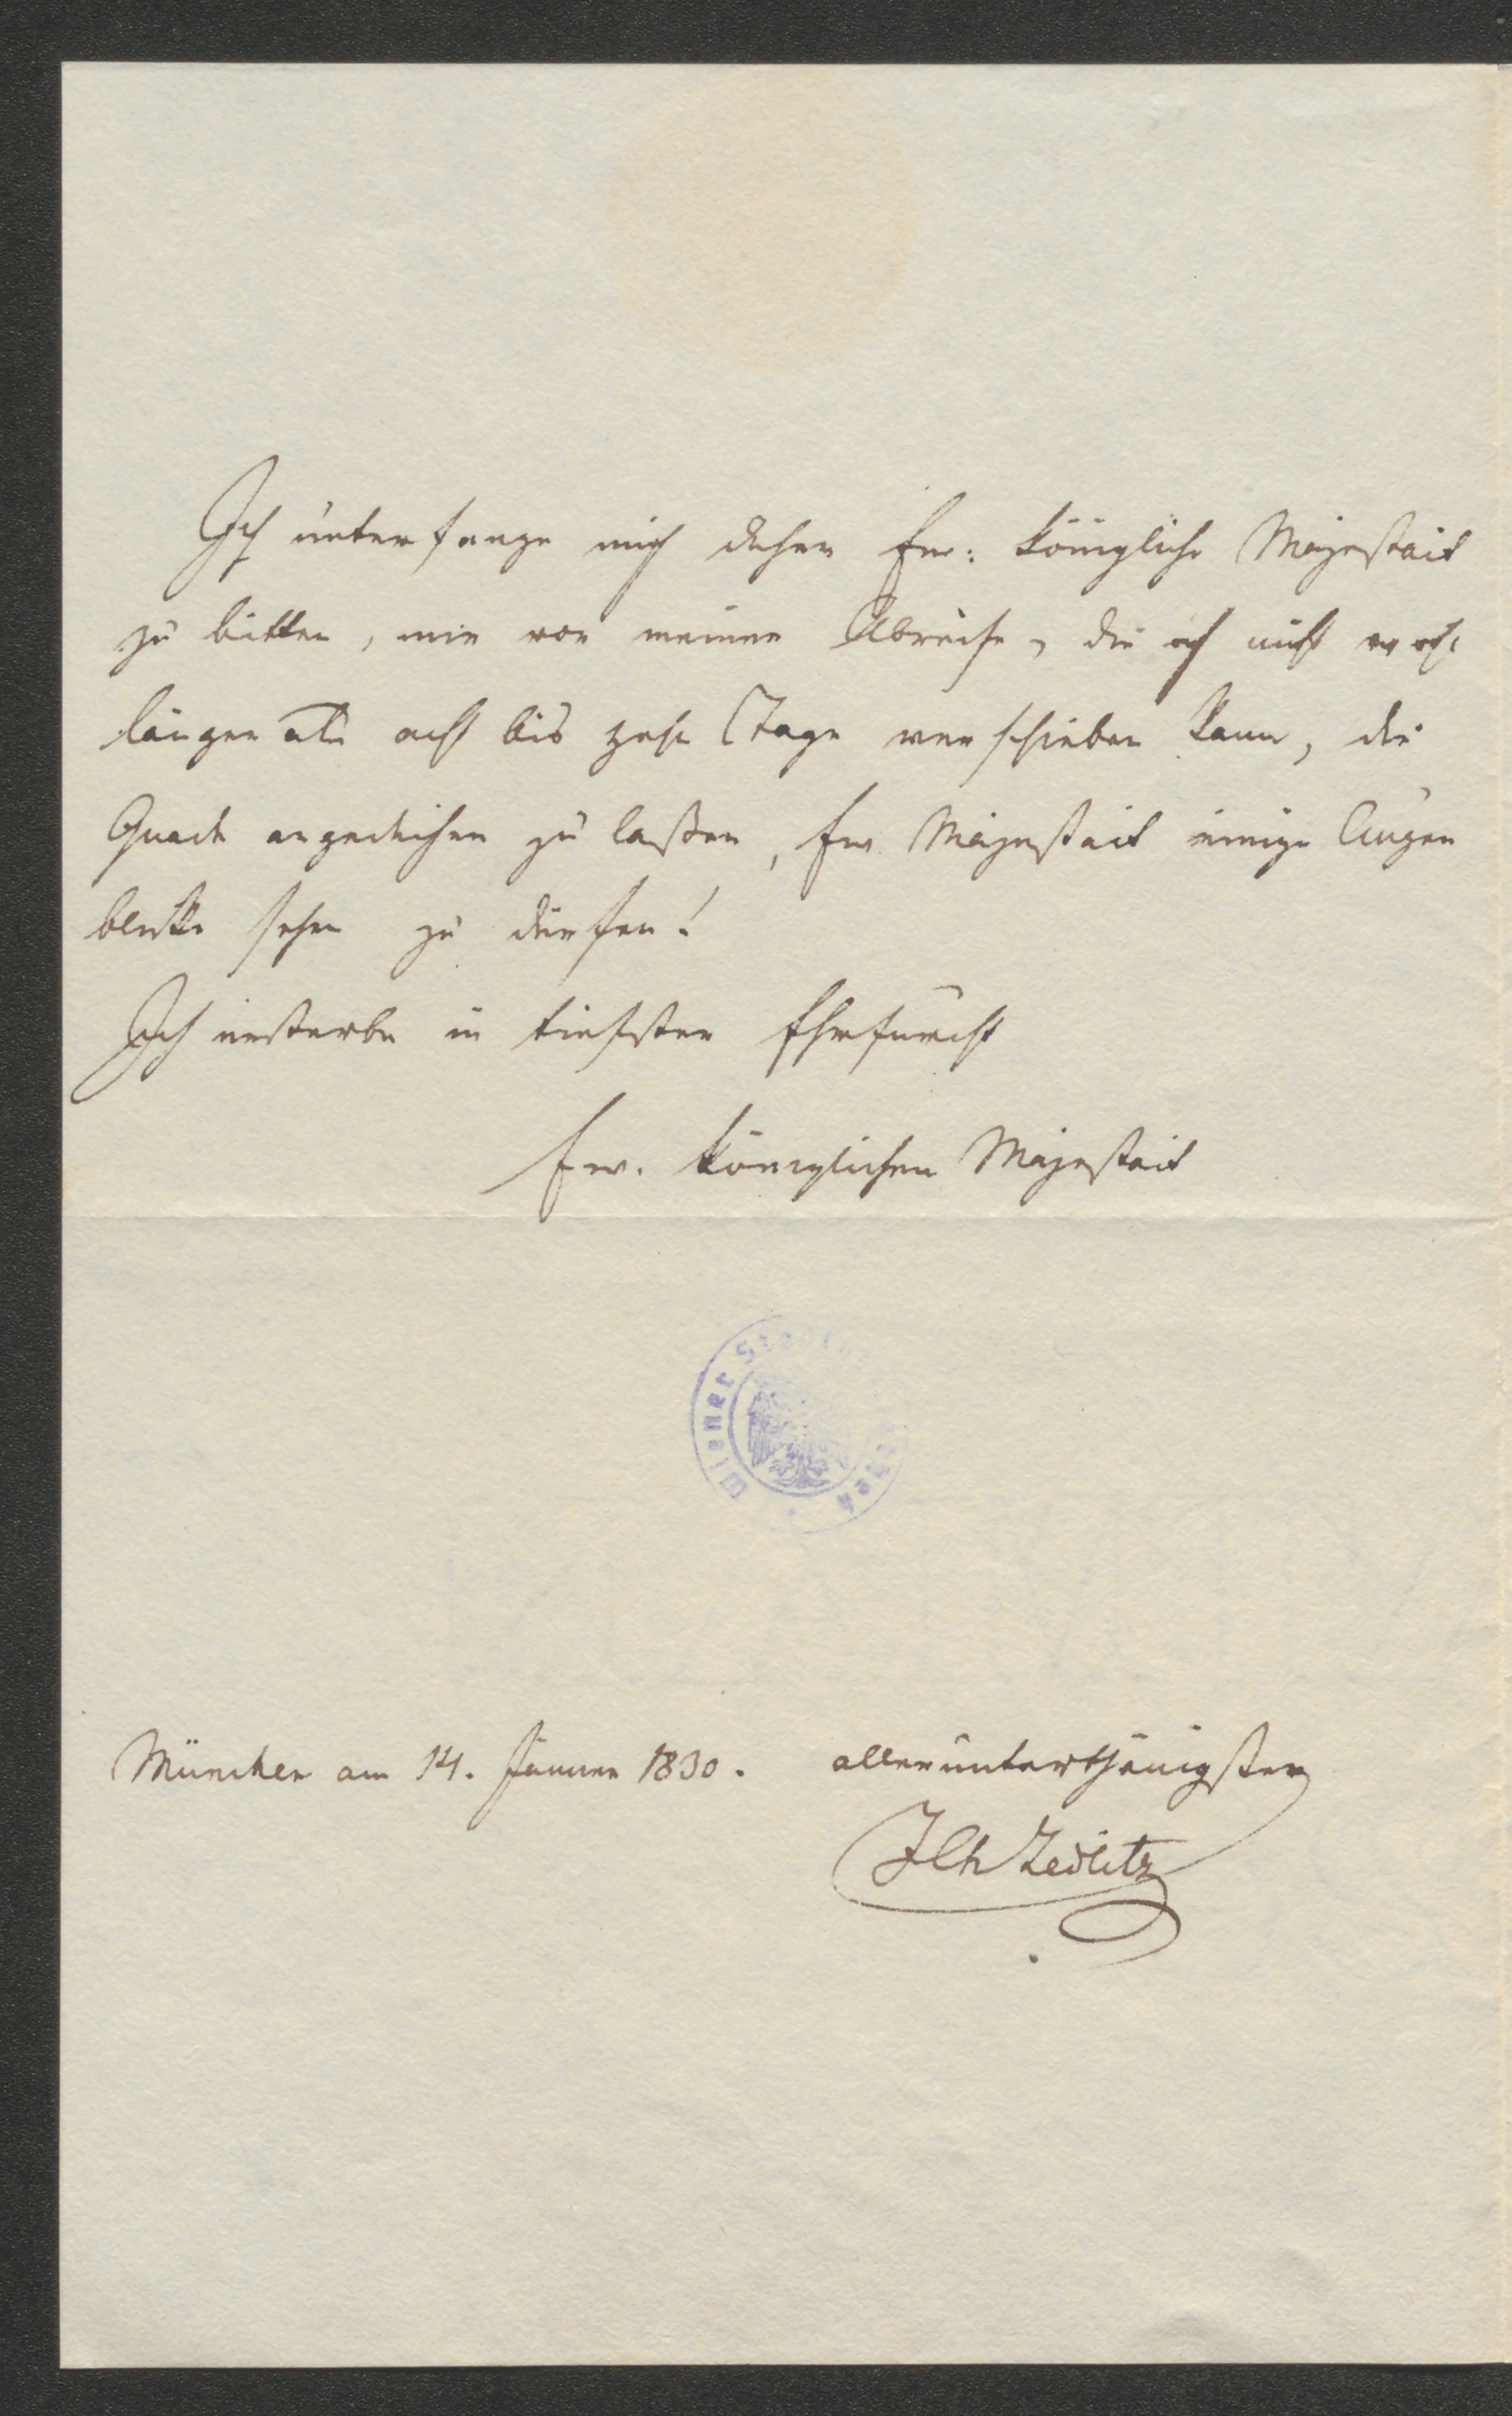 Ich unterfange mich daher Ew: Königliche Majestät
zu bitten, mir vor meiner Abreise, die ich nicht wohl
länger als acht bis zehn Tage verschieben kann, die
Gnade angedeihen zu laßen, Ew Majestät einige Augen
blicke sehen zu dürfen!
Ich ersterbe in tiefster Ehrfurcht
Ew. Königlichen Majestät
Wiener
München am 14. Jänner 1830. allerunterthänigster
JCh Zedlitz